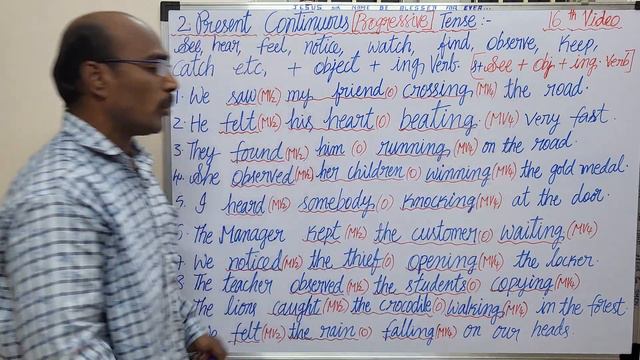 JESUS UR NAME BE BLESSED FOR EVER...
2. Present Continuous [Progressive] Tense :- 16th Video
See, hear, feel, notice, watch, find, observe, keep,
catch etc, + object + ing verb. [s+see + obj + ing. verb]
1. We saw (MV2) my friend (O) crossing (MV4) the road.
2. He felt (MV2) his heart (O) beating. (MV4) very fast.
3. They found (MV2) him (O) running (MV4) on the road.
4. She observed (MV2) her children (O) winning (MV4) the gold medal.
5. I heard (MV2) somebody (O) knocking (MV4) at the door.
6. The Manager kept (MV2) the customer (O) waiting (MV4)
7. We noticed (MV2) the thief (O) opening (MV4) the locker.
8. The teacher observed (MV2) the students (O) copying (MV4)
The lions caught (MV2) the crocodile (O) walking (MV4) in the forest.
felt (MV2) the rain (O) falling (MV4) on our heads.